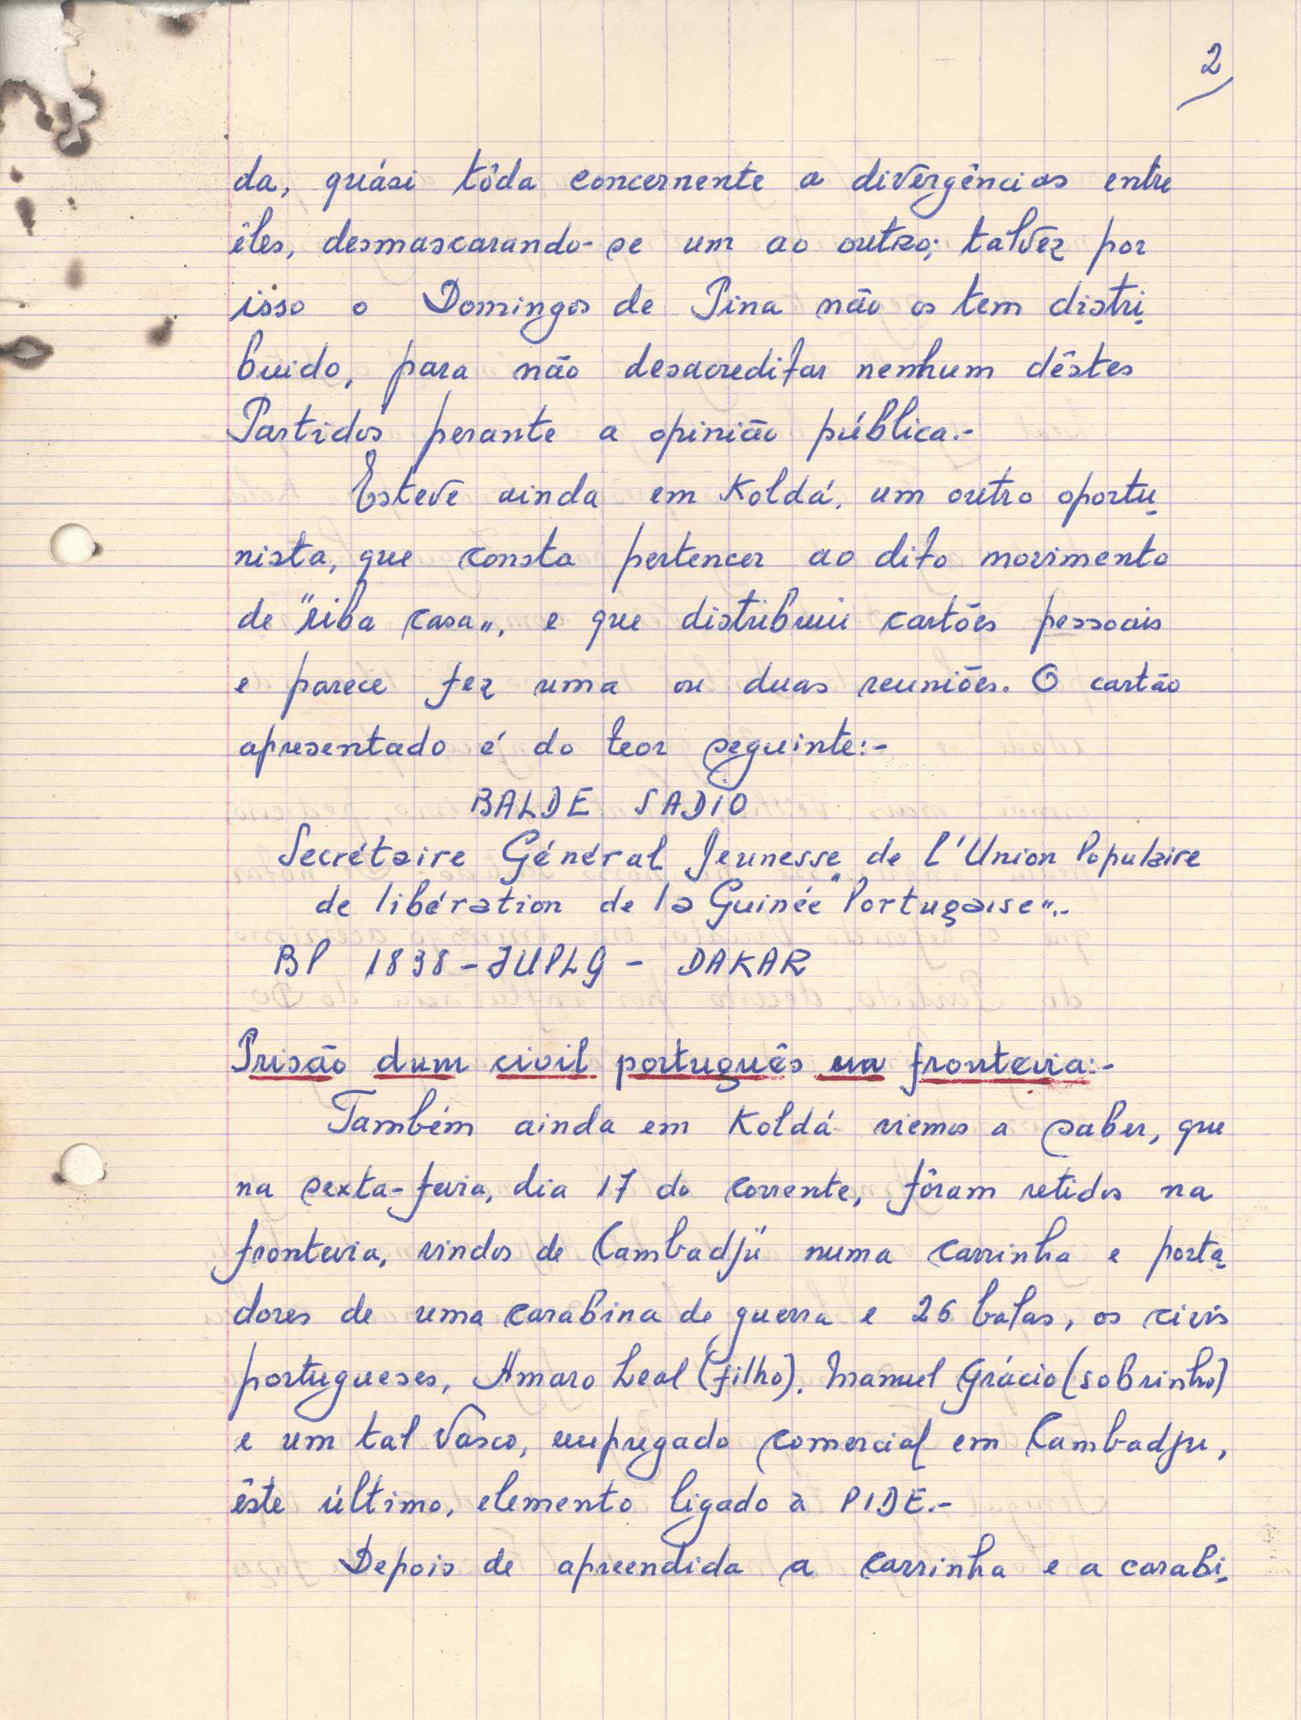 2
da, quási tôda concernente a divergências entre
êles, desmascarando-se um ao outro; talvêz por
isso o Domingos de Pina não os tem distri-
buido, para não desacreditar nenhum dêstes
Partidos perante a opinião pública.-
Esteve ainda em Koldá, um outro oportu-
nista, que consta pertencer ao dito movimento
de "riba casa", e que distribuiu cartões pessoais
e parece fez uma ou duas reuniões. O cartão
apresentado é do teor seguinte:-
BALDE SADIO
Secrétaire Général Jeunesse de l'Union Populaire
de libération de la Guinée "Portugaise".-
BP 1838-JUPLG - DAKAR
Prisão dum civil português na fronteira:-
Também ainda em Koldá viemos a saber, que
na sexta-feira, dia 17 do corrente, fôram retidos na
fronteira, vindos de Cambadjú numa carrinha e porta-
dores de uma carabina de guerra e 26 balas, os civis
portugueses, Amaro Leal (filho), Manuel Grácio (sobrinho)
e um tal Vasco, empregado comercial em Cambadju,
êste último, elemento ligado à PIDE.-
Depois de apreendida a carrinha e a carabi-